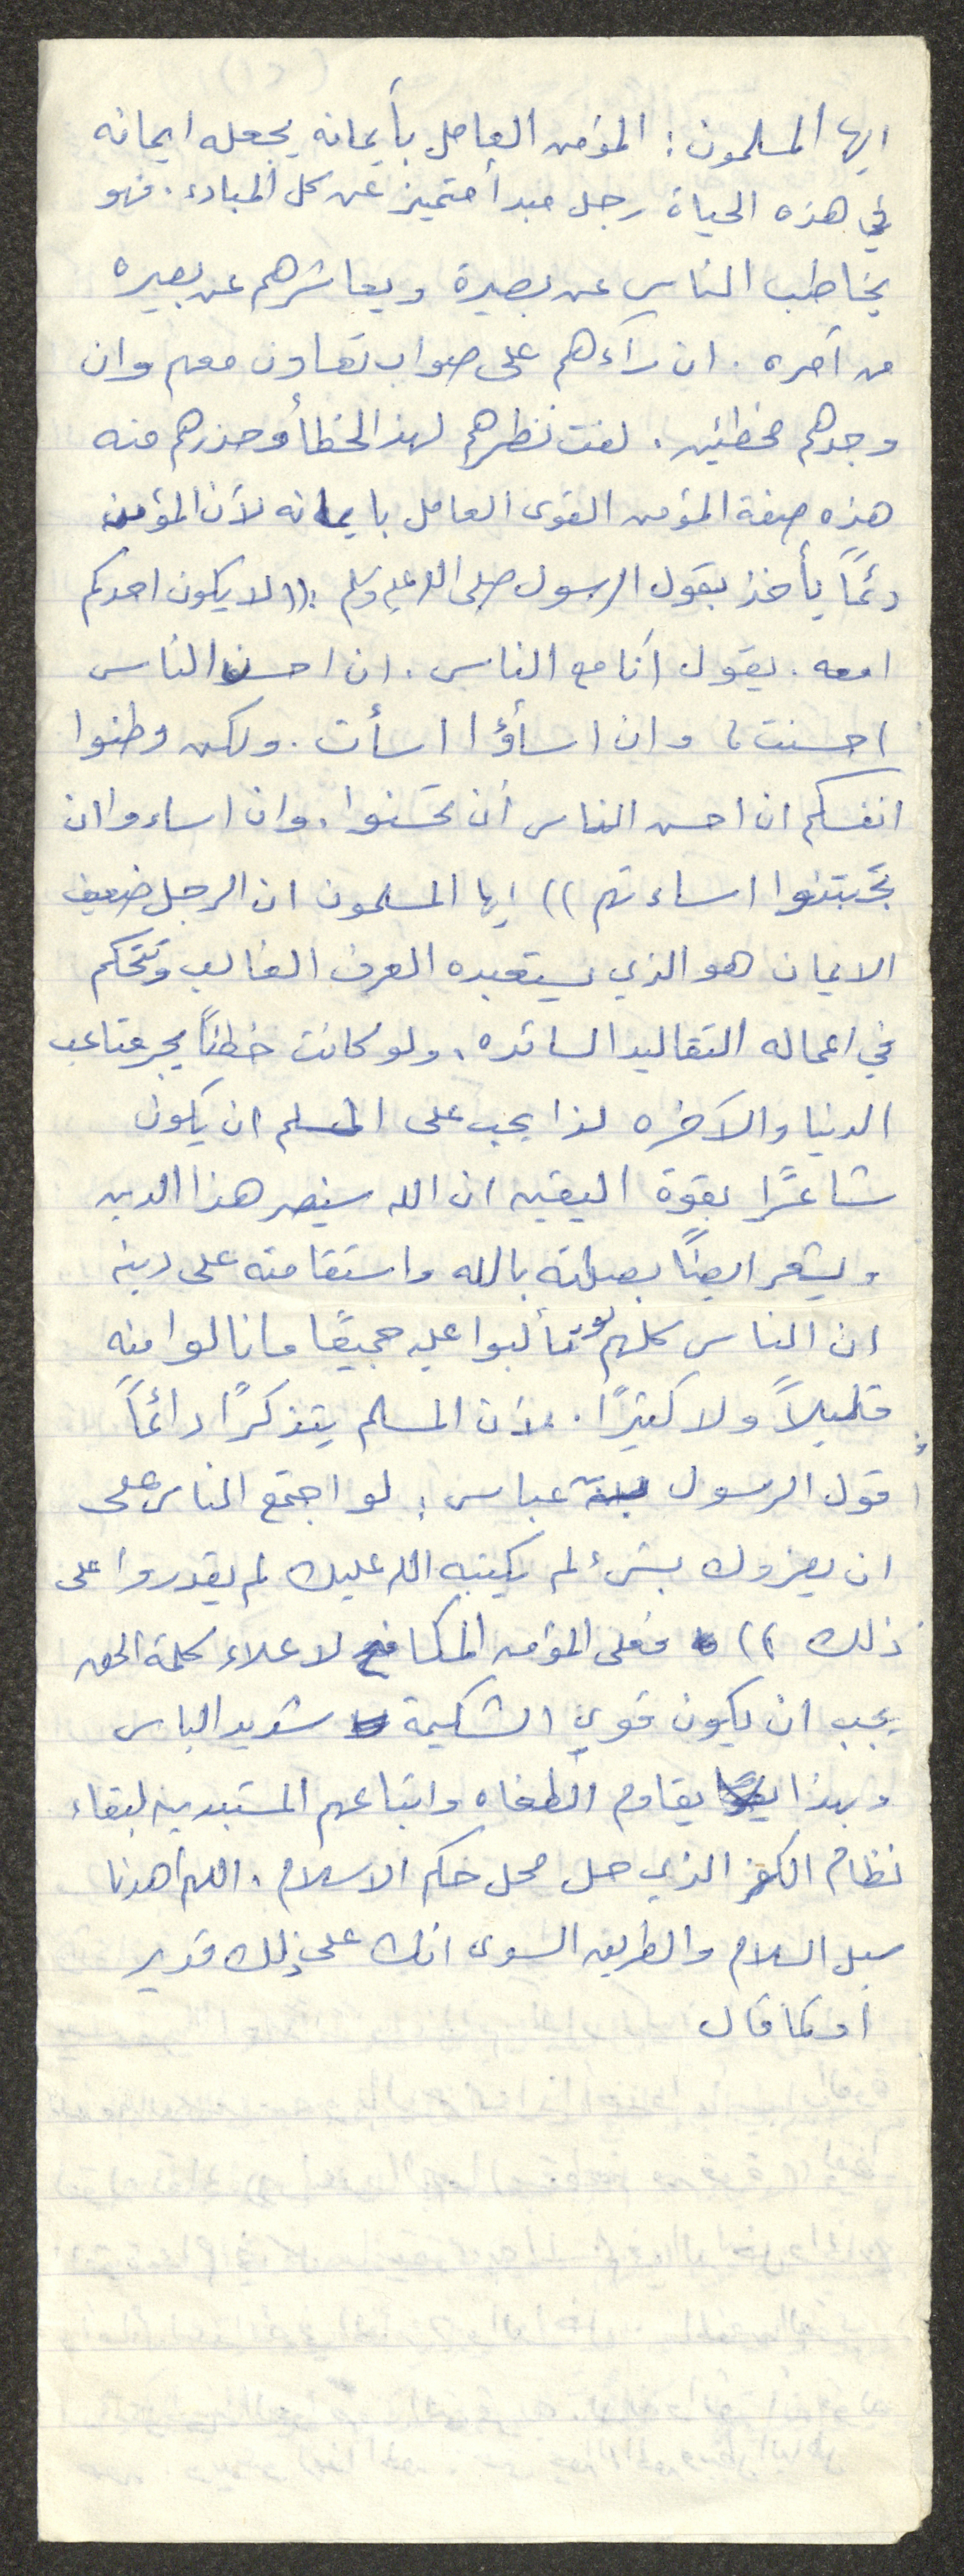 ايها المسلمون : المؤمن العامل بأيمانه يجعله ايمانه
في هذه الحياة رجل مبدأ متميز عن كل المبادء . فهو
يخاطب الناس عن بصيرة ويعاشرهم عن بصيره
من أمره . ان رآءهم على صواب تعاون معهم وان
وجدهم مخطئين . لفت نظرهم لهذ الخطأ وحذرهم منه
هذه صفة المؤمن القوى العامل بايمانه لأن المؤمن
دئماً يأخذ بقول الرسول صلى الله عليه وسلم : (( لا يكون احدكم
امعه . يقول أنا مع الناس . ان احسن الناس
احسنت ، وان اسأؤا اسأت . ولكن وطنوا
انفسكم ان احسن الناس أن تحسنوا . وان اساءوا ان
تجتنبوا اساءتهم )) ايها المسلمون ان الرجل ضعيف
الايمان هو الذي يستعبده العرف الغالب وتتحكم
في اعماله التقاليد السائده . ولو كانت خطئاً يجر متاعب
الدنيا والآخره لذا يجب على المسلم ان يكون
شاعرًا بقوة اليقين ان الله سينصر هذا الدين
ويشعر ايضاً بصلته بالله واستقامته على دينه
ان الناس كلهم لو تألبوا عليه جميعًا ما نالوا منه
قليلاً ولا كثيرًا . لأن المسلم يتذكرًا دائماً
قول الرسول لابن عباس : لو اجتمع الناس على
ان يضروك بشئ لم يكتبه الله عليك لم يقدروا على
ذلك )) فعلى المؤمن المكافح لاعلاء كلمة الحق
يجب ان يكون قوي الشكيمة شديد الباس
وبهذا يقاوم الطغاه واتباعهم المستبدين لبقاء
نظام الكفر الذي حل محل حكم الاسلام . اللهم أهدنا
سبل السلام والطريق السوى انك على ذلك قدير
او كما قال